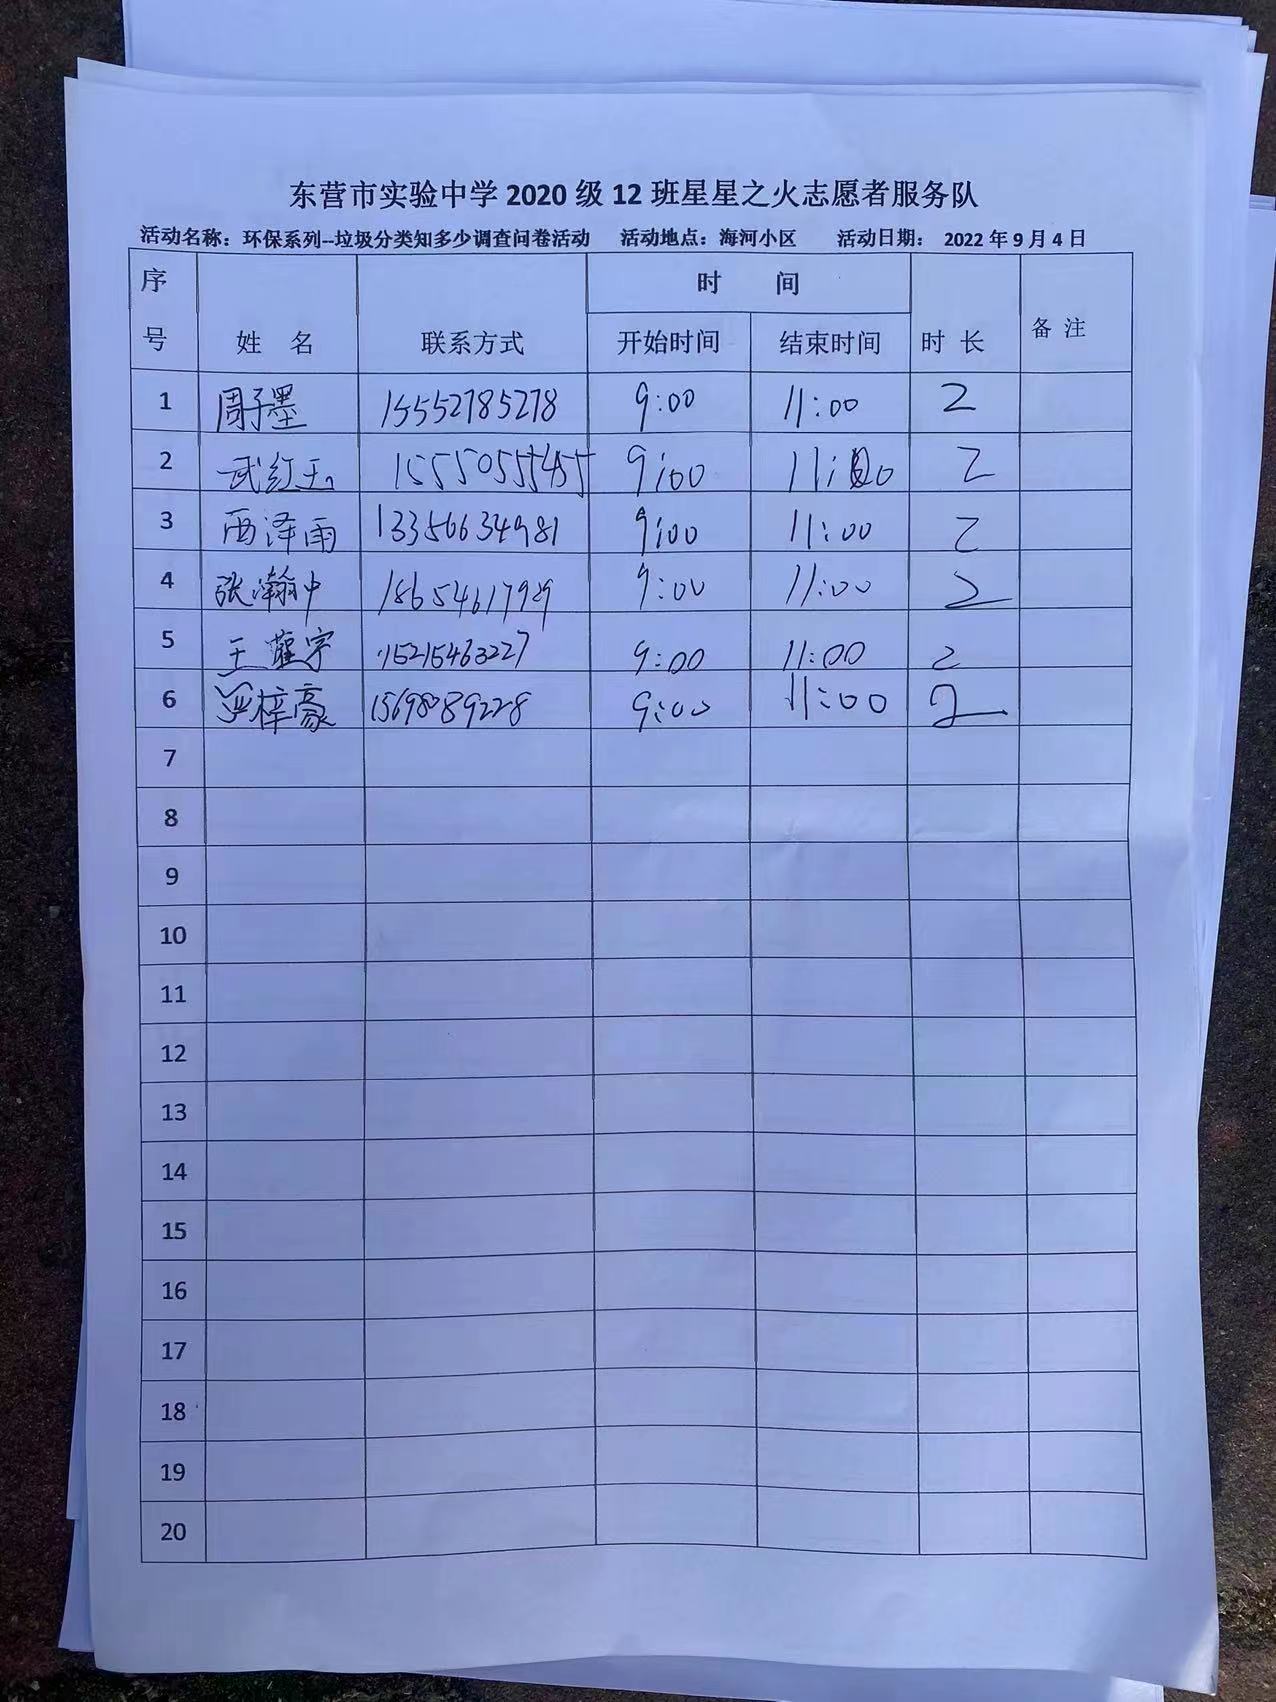 东营市实验中学 2020 级 12 班星星之火志愿者服务队
活动名称：环保系列--垃圾分类知多少调查问卷活动 活动地点：海河小区 活动日期： 2022 年 9 月 4 日
序号 姓 名 联系方式 时 间 开始时间 结束时间 时 长 备 注
1 周子墨 15552785278 9:00 11:00 2
2 武红玉 15550555455 9:00 11:00 2
3 西泽雨 13356634981 9:00 11:00 2
4 张瀚中 18654617929 9:00 11:00 2
5 王 宇 15215463227 9:00 11:00 2
6 梓豪 15698289228 9:00 11:00 2
7
8
9
10
11
12
13
14
15
16
17
18
19
20